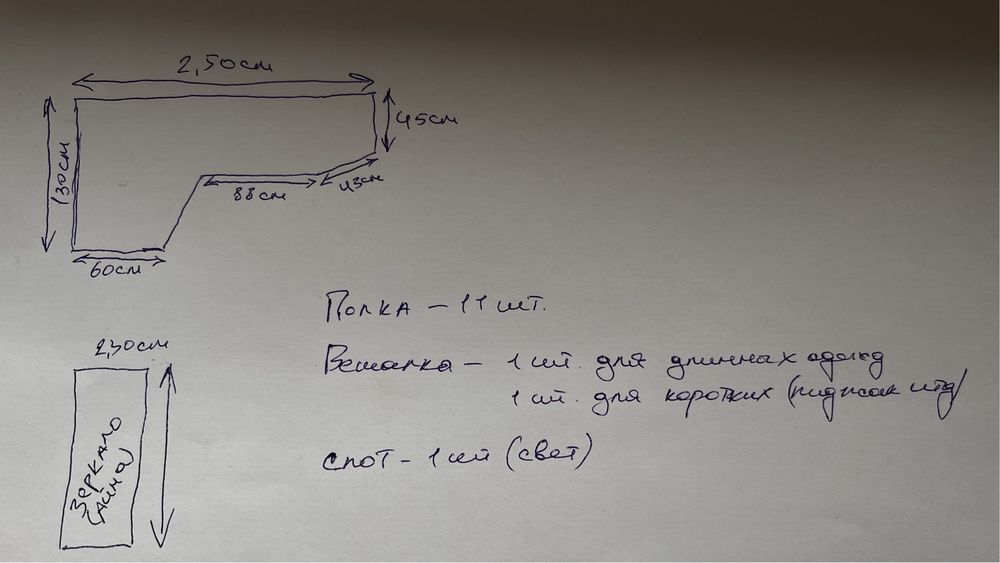 2,50см
45см
130см
88см
43см
60см
Полка – 11 шт.
2,30см
Вешалка – 1 шт. для длинных одежд
1 шт. для коротких (пиджак итд)
Зеркало
спот – 1 шт (свет)